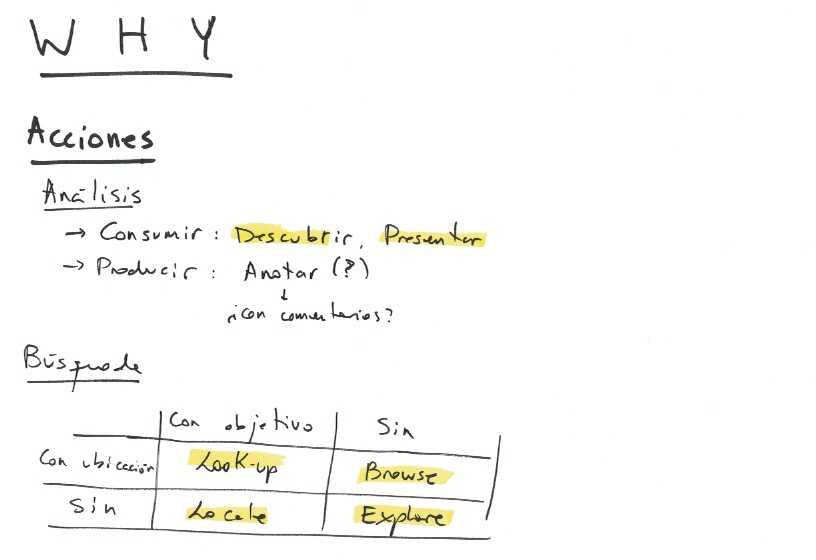 WHY
Acciones
Análisis
→ Consumir : Descubrir, Presentar
→ Producir : Anotar (?)
↓
¿con comentarios?
Búsqueda
Con objetivo Sin
Con ubicación Look-up Browse
Sin Locate Explore